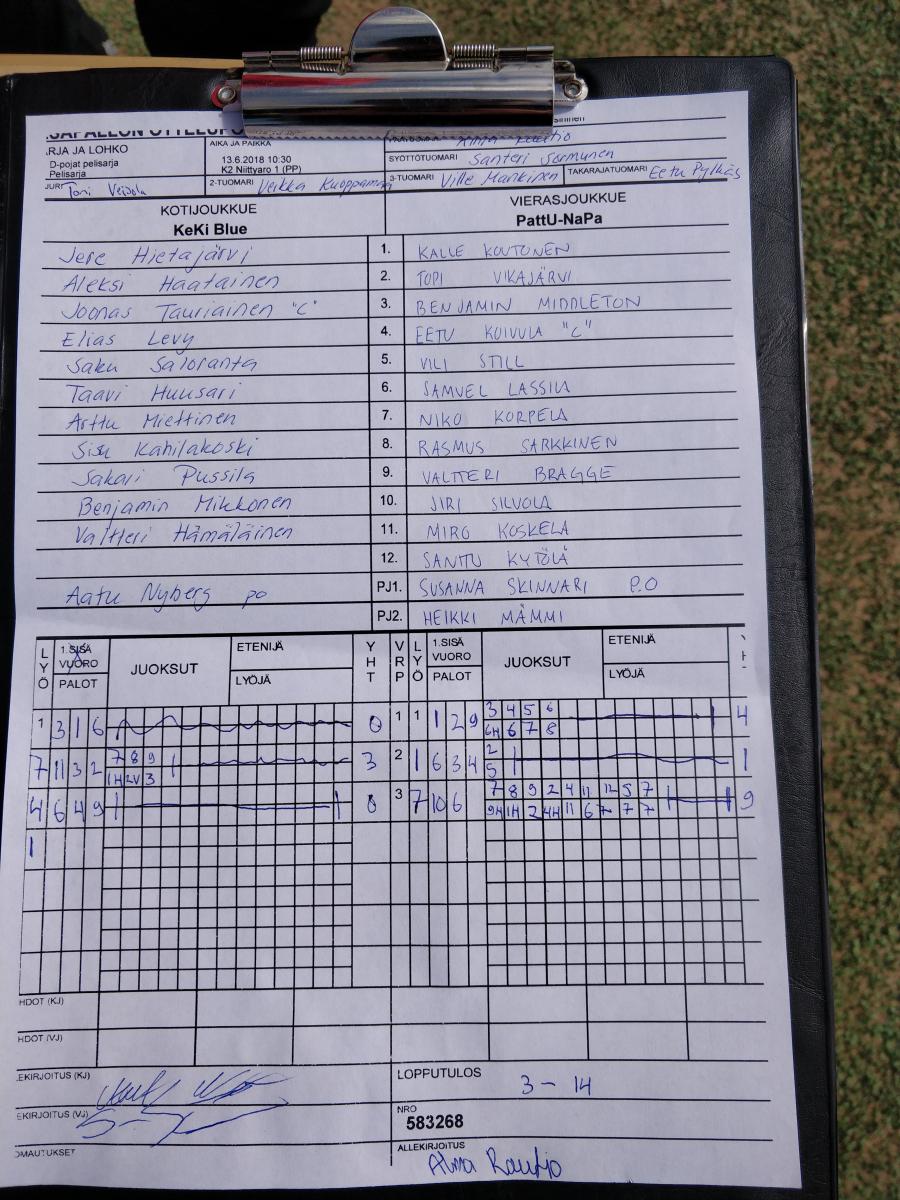 SAPALLON OTTELUPÖ
RJA JA LOHKO
D-pojat pelisarja
Pelisarja
AIKA JA PAIKKA
13.6.2018 10:30
K2 Niittyaro 1 (PP)
SYÖTTÖTUOMARI Santeri Sormunen
2-TUOMARI Veikka Kuoppamäki
3-TUOMARI Ville Mankinen
TAKARAJATUOMARI Eetu Pylkäs
KOTIJOUKKUE VIERASJOUKKUE
KeKi Blue PattU-NaPa
Jere Hietajärvi 1. KALLE KOUTONEN
Aleksi Haatainen 2. TOPI VIKAJÄRVI
Joonas Tauriainen "C" 3. BENJAMIN MIDDLETON
Elias Levy 4. EETU KOIVULA "C"
Saku Saloranta 5. VILI STILL
Taavi Huusari 6. SAMUEL LASSILA
Arttu Miettinen 7. NIKO KORPELA
Sisu Kahilakoski 8. RASMUS SARKKINEN
Sakari Pussila 9. VALTTERI BRAGGE
Benjamin Mikkonen 10. JIRI SILVOLA
Valtteri Hämäläinen 11. MIRO KOSKELA
12. SANTTU KYTÖLÄ
Aatu Nyberg po PJ1. SUSANNA SKINNARI P.O
PJ2. HEIKKI MÄMMI
LYÖ 1.SISÄ VUORO PALOT JUOKSUT ETENIJÄ LYÖJÄ YHT VRP LYÖ 1.SISÄ VUORO PALOT JUOKSUT ETENIJÄ LYÖJÄ
1 3 1 6 0 1 1 1 2 9 3 4 5 6 4
6H 6 7 8
7 11 3 2 7 8 9 3 2 1 6 3 4 2 1
1H 2V 3 5
4 6 4 9 0 3 7 10 6 7 8 9 2 4 11 12 5 7 9
9H 1H 2 4H 11 6 7 7 7
1
HDOT (KJ)
HDOT (VJ)
EKIRJOITUS (KJ)
LOPPUTULOS 3 - 14
EKIRJOITUS (VJ)
NRO
583268
OMAUTUKSET
ALLEKIRJOITUS
Alma Rautio